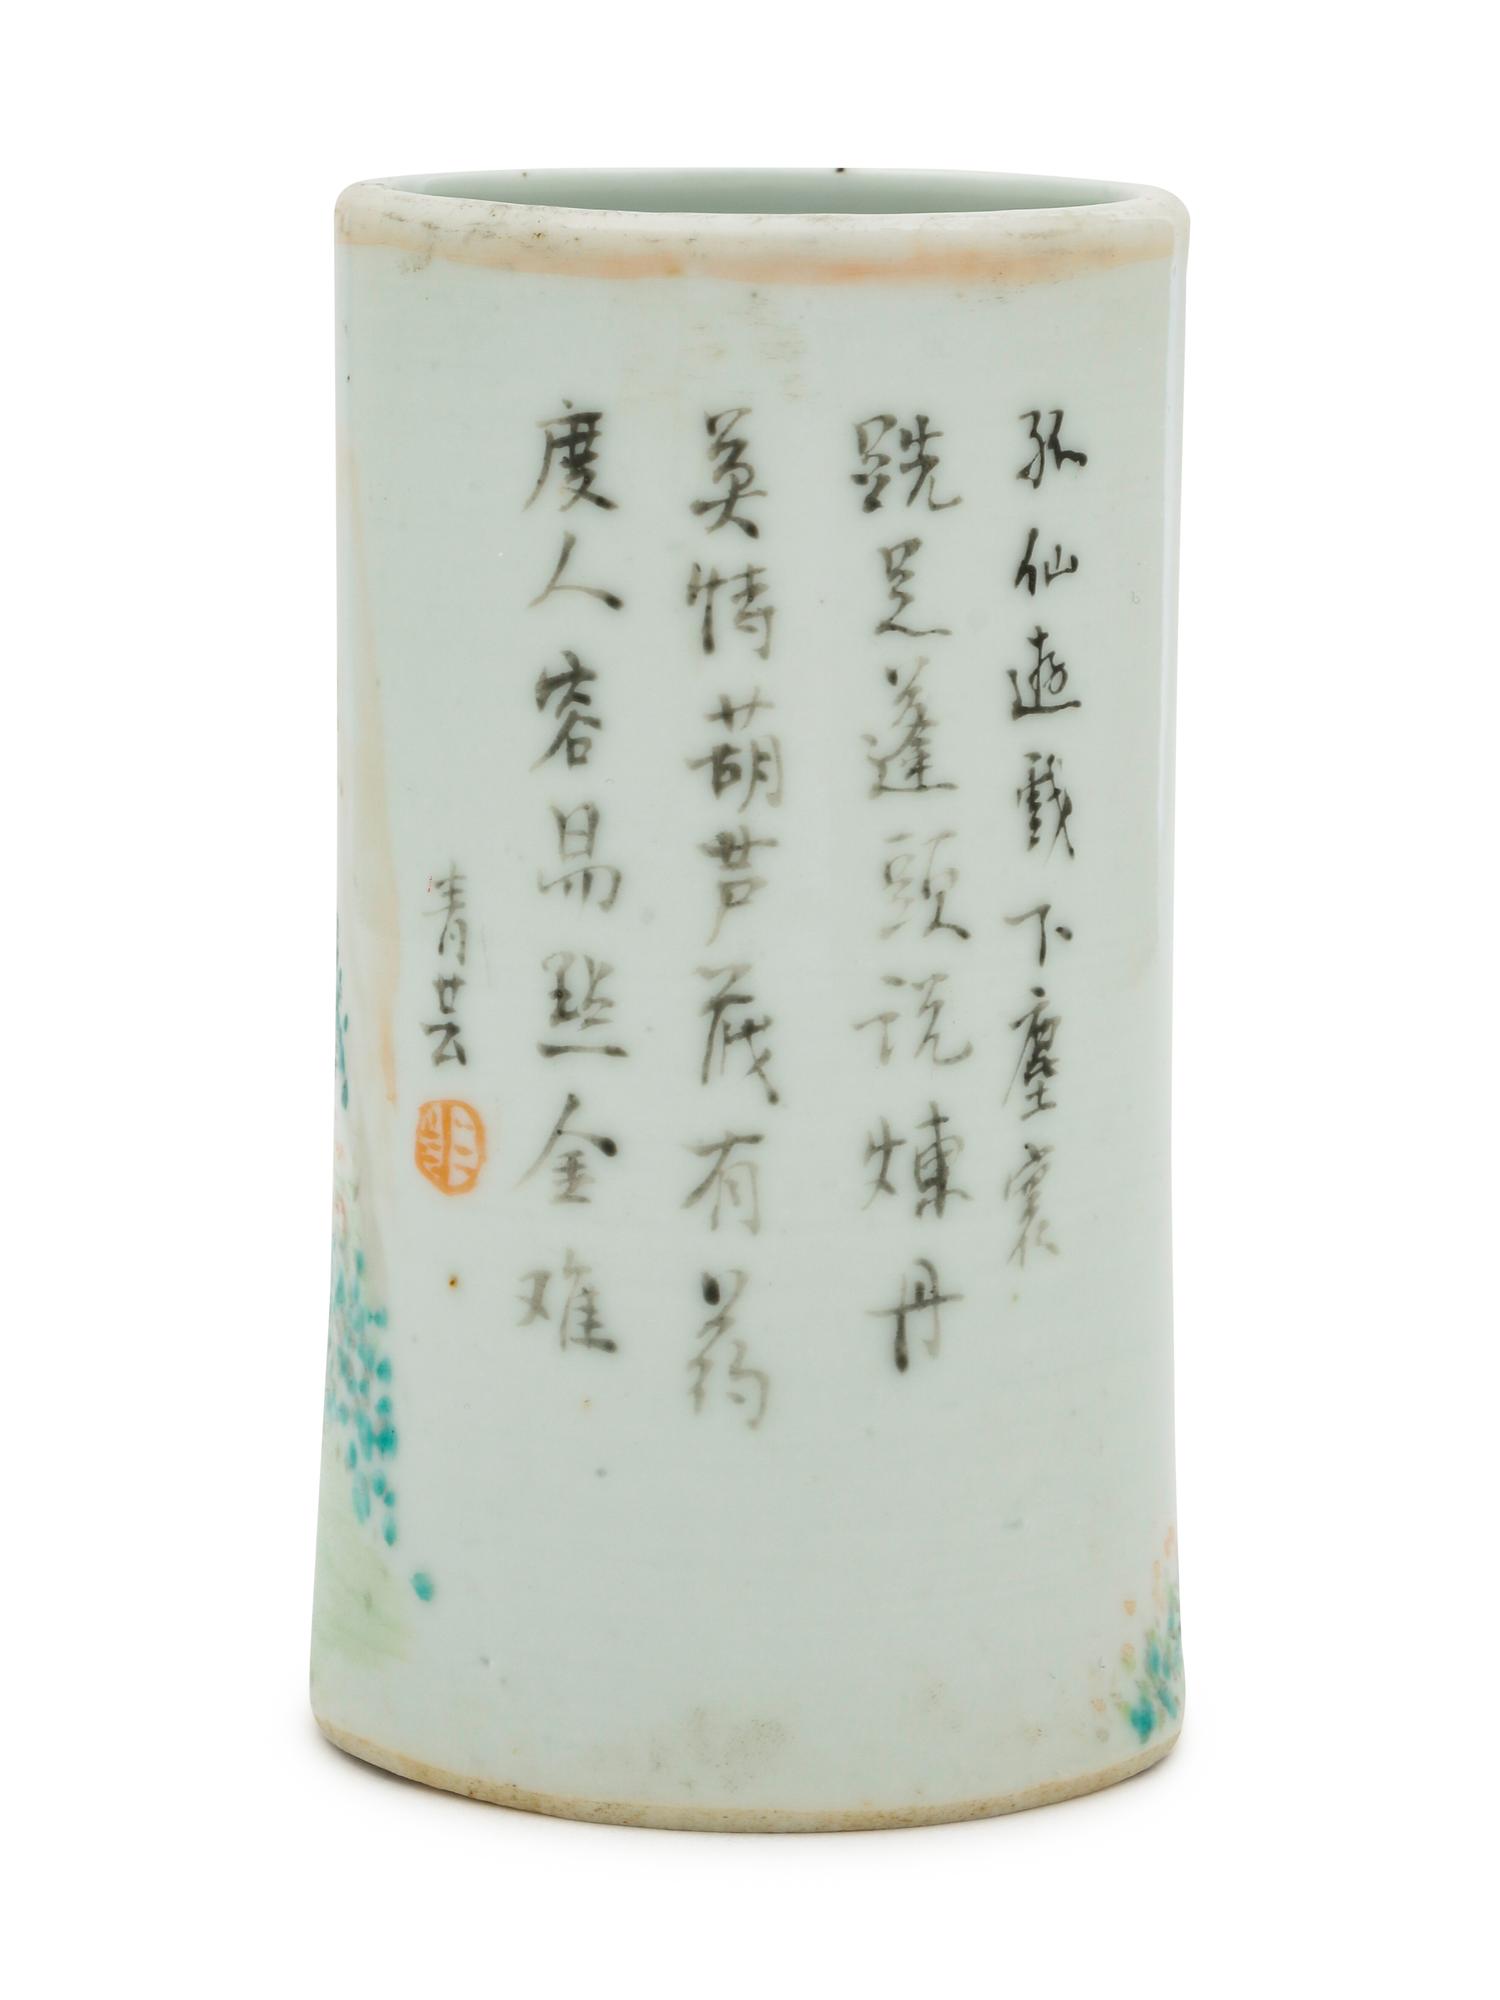 孤仙遊戲下塵寰
跣足蓬頭说煉丹
莫恃葫芦蔵有药
度人容易點金难
青芸